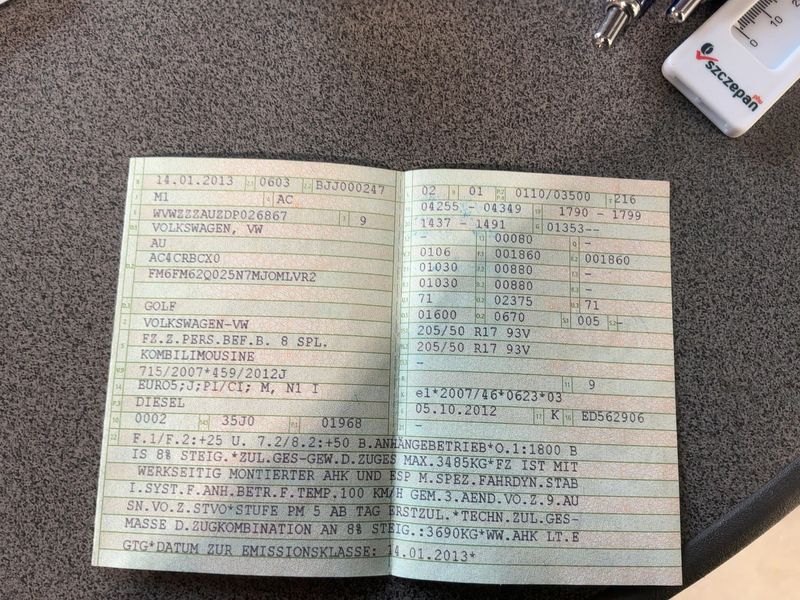 szczepan phu
0
10
14.01.2013 0603 BJJ000247
M1 AC
WVWZZZAUZDP026867 9
VOLKSWAGEN, VW
AU
AC4CRBCX0
FM6FM62Q025N7MJOMLVR2
GOLF
VOLKSWAGEN-VW
FZ.Z.PERS.BEF.B. 8 SPL.
KOMBILIMOUSINE
715/2007*459/2012J
EURO5;J;PI/CI; M, N1 I
DIESEL
0002 35J0 01968
02 01 0110/03500 216
04255 - 04349 1790 - 1799
1437 - 1491 01353--
- 00080 -
0106 001860 001860
01030 00880 -
01030 00880 -
71 02375 71
01600 0670 005 -
205/50 R17 93V
205/50 R17 93V
-
- 9
e1*2007/46*0623*03
05.10.2012 K ED562906
-
F.1/F.2:+25 U. 7.2/8.2:+50 B.ANHÄNGEBETRIEB*O.1:1800 B
IS 8% STEIG.*ZUL.GES-GEW.D.ZUGES MAX.3485KG*FZ IST MIT
WERKSEITIG MONTIERTER AHK UND ESP M.SPEZ.FAHRDYN.STAB
I.SYST.F.ANH.BETR.F.TEMP.100 KM/H GEM.3.AEND.VO.Z.9.AU
SN.VO.Z.STVO*STUFE PM 5 AB TAG ERSTZUL.*TECHN.ZUL.GES-
MASSE D.ZUGKOMBINATION AN 8% STEIG.:3690KG*WW.AHK LT.E
GTG*DATUM ZUR EMISSIONSKLASSE: 14.01.2013*